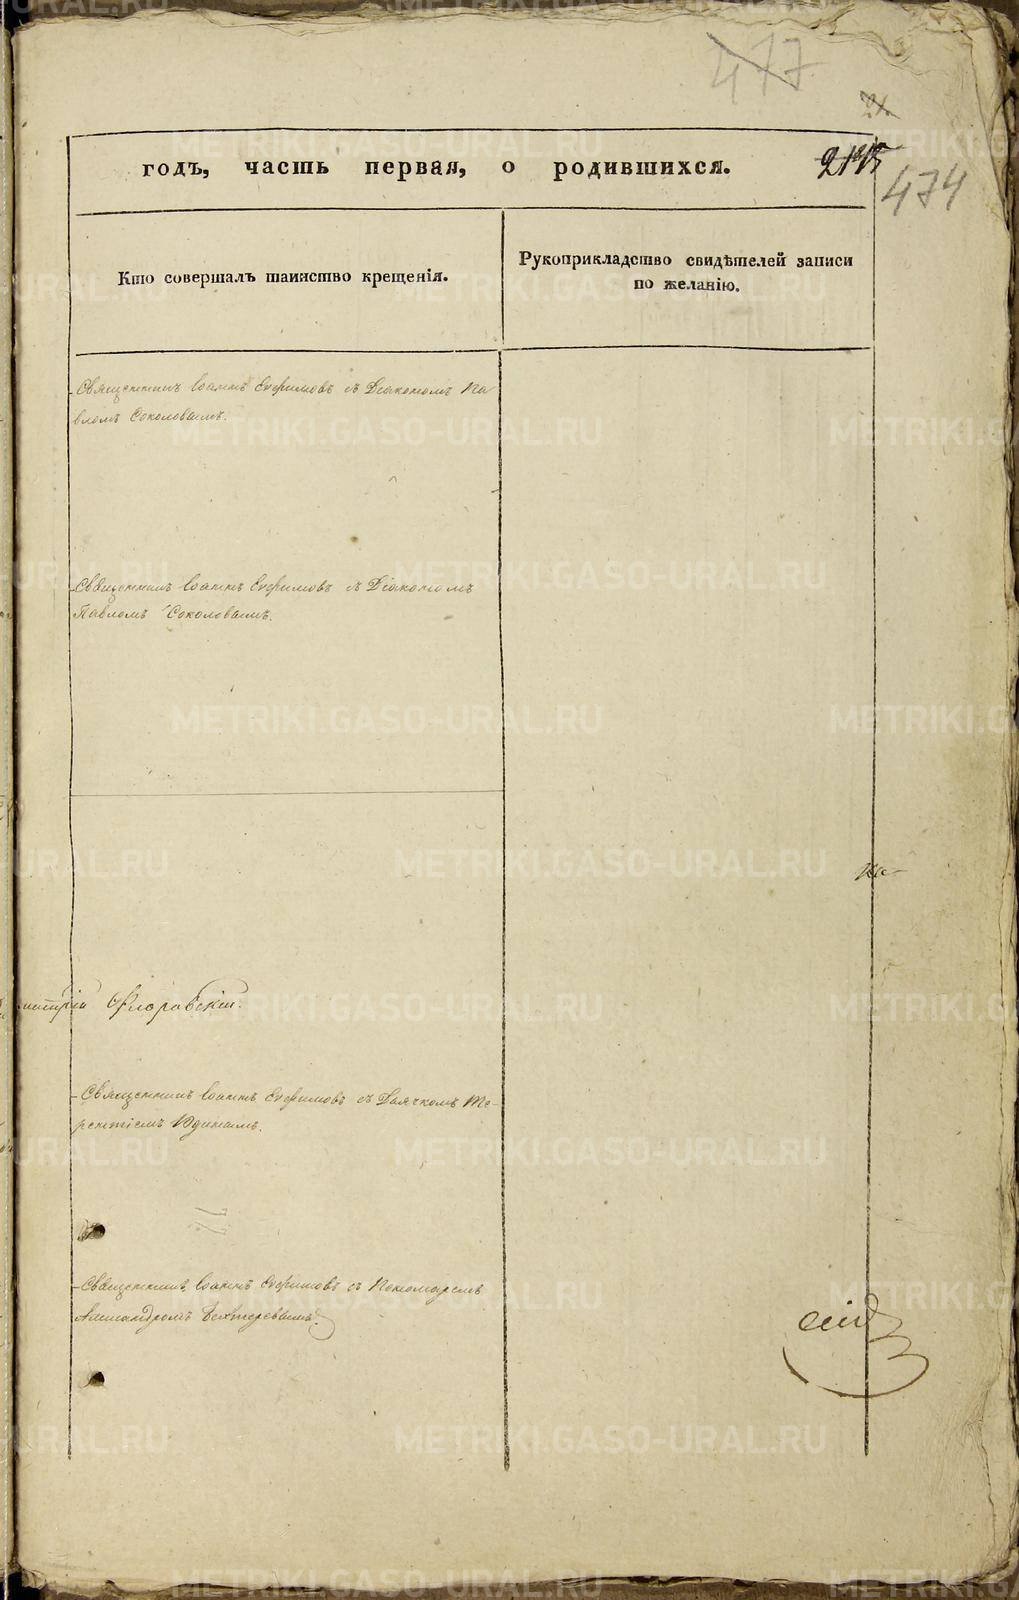 477
годъ, часть первая, о родившихся.
474
Кто совершалъ таинство крещенія.
Рукоприкладство свидѣтелей записи
по желанію.
Священникъ Іоаннъ Ефимовъ съ Діакономъ Па
вломъ Соколовымъ.
Священникъ Іоаннъ Ефимовъ съ Діакономъ
Павломъ Соколовымъ.
Флоровскій.
Священникъ Іоаннъ Ефимовъ съ Дьячкомъ Те-
рентіемъ Юдинымъ.
Священникъ Іоаннъ Ефимовъ съ Пономаремъ
Александромъ Бехтеревымъ.
METRIKI.GASO-URAL.RU